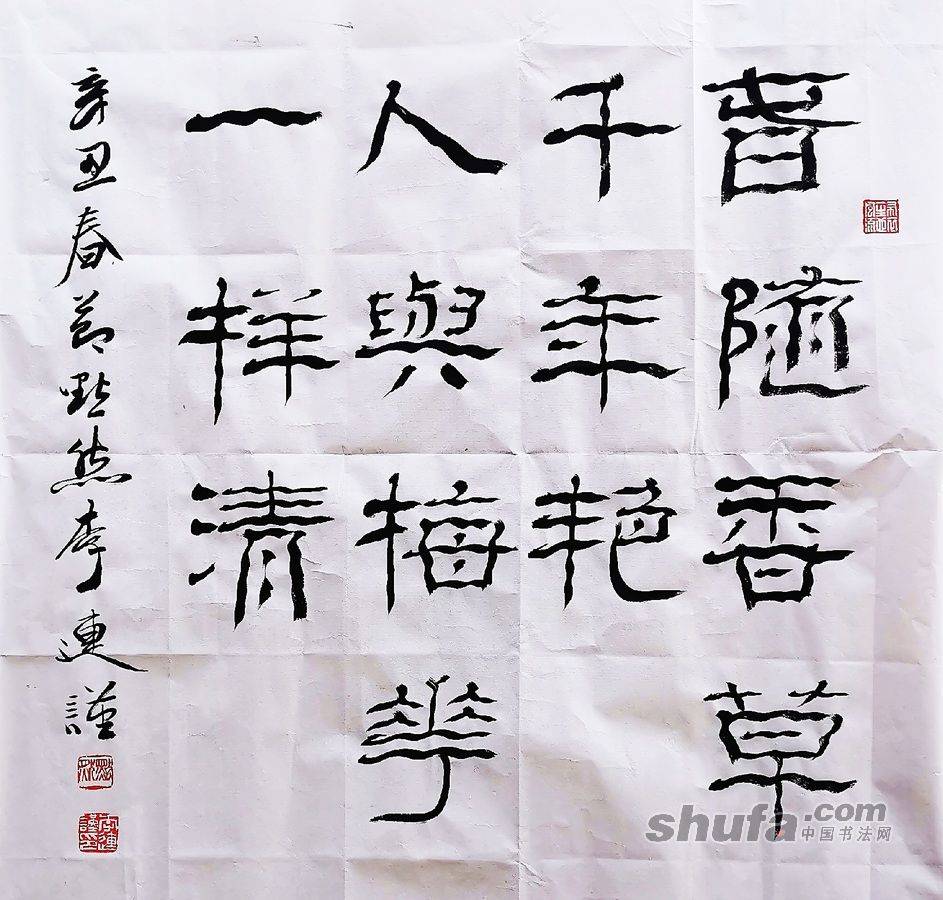 春隨香草
千年艳
人與梅華
一样清
辛丑春節默然李連謹
shufa.com
中国书法网